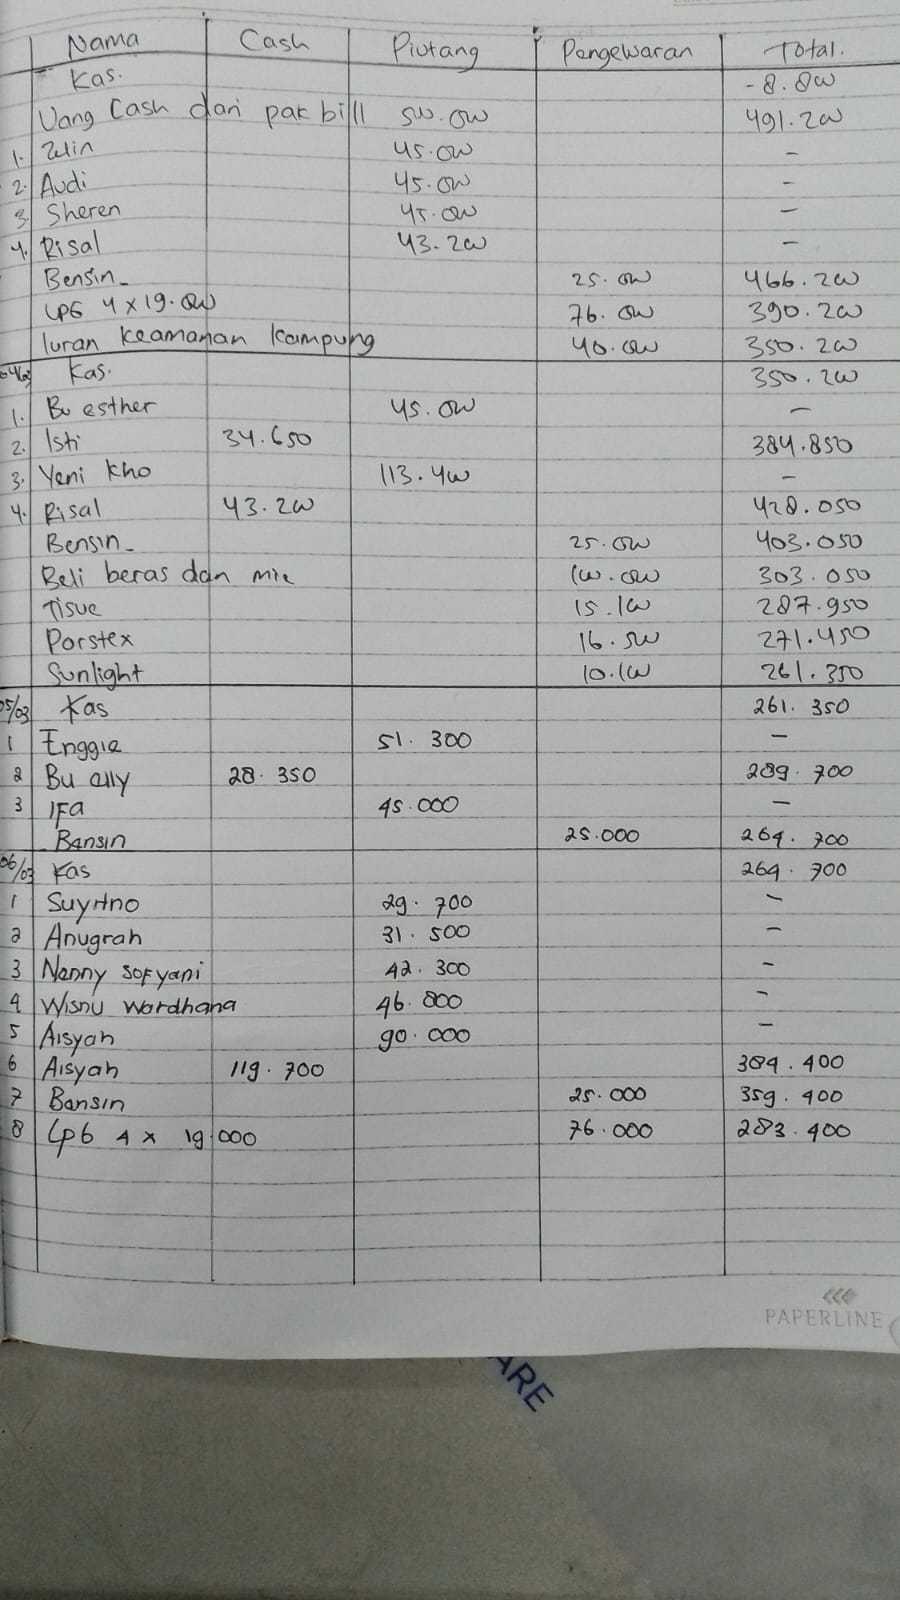 Nama Cash Piutang Pengeluaran Total.
Kas. -8.800
Uang Cash dari pak bill 500.000 491.200
1. Zelin 45.000 -
2. Audi 45.000 -
3. Sheren 45.000 -
4. Risal 43.200 -
Bensin 25.000 466.200
LPG 4 x 19.000 76.000 390.200
Iuran Keamanan Kampung 40.000 350.200
04/03 Kas. 350.200
1. Bu esther 45.000 -
2. Isti 34.650 384.850
3. Yeni kho 113.400 -
4. Risal 43.200 428.050
Bensin 25.000 403.050
Beli beras dan mie 100.000 303.050
Tisue 15.100 287.950
Porstex 16.500 271.450
Sunlight 10.100 261.350
05/03 Kas 261.350
1 Enggie 51.300 -
2 Bu elly 28.350 289.700
3 IFa 45.000 -
Bensin 25.000 264.700
06/03 Kas 264.700
1 Suyitno 29.700 -
2 Anugrah 31.500 -
3 Nenny sofyani 42.300 -
4 Wisnu wardhana 46.800 -
5 Aisyah 90.000 -
6 Aisyah 119.700 384.400
7 Bensin 25.000 359.400
8 Lpg 4 x 19.000 76.000 283.400
PAPERLINE